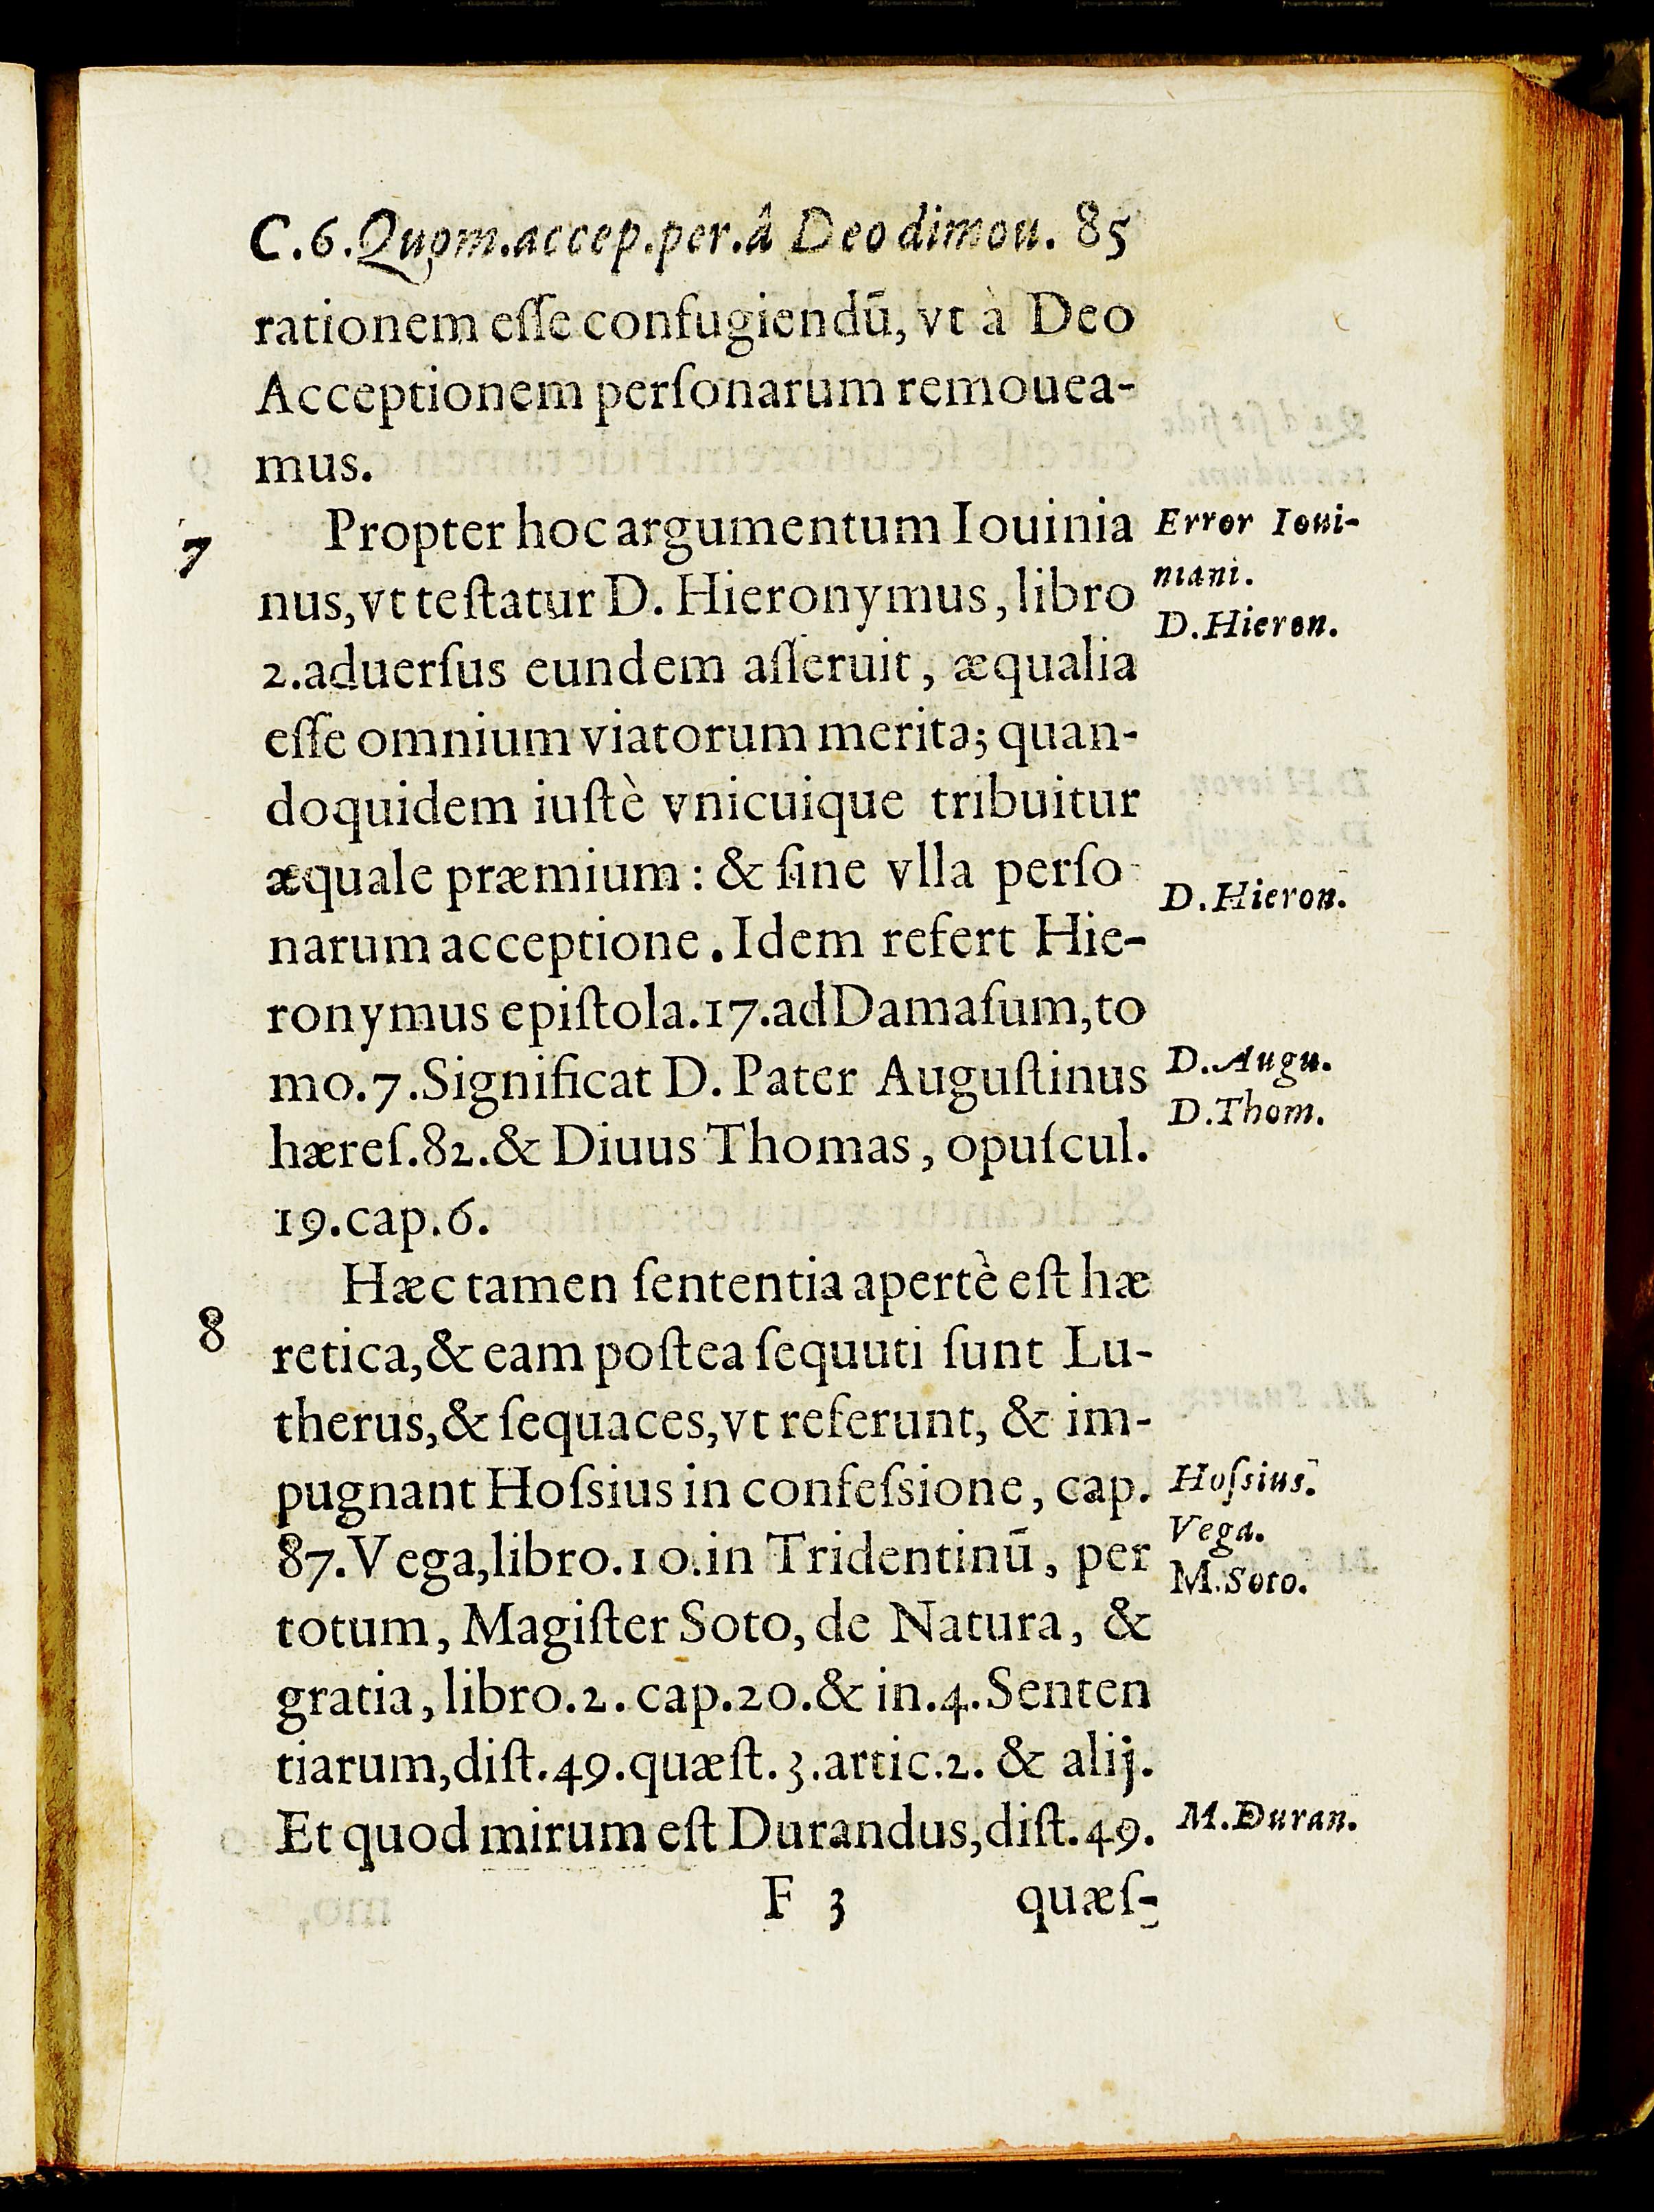 C.6.Quom.accep.per.â Deo dimou. 85
rationem eſſe confugiendū, vt à Deo
Acceptionem perſonarum remouea-
mus.
7
Propter hoc argumentum Iouinia
nus, vt teſtatur D. Hieronymus, libro
2. aduerſus eundem aſſeruit, æqualia
eſſe omnium viatorum merita; quan-
doquidem iuſtè vnicuique tribuitur
æquale præmium: & ſine vlla perſo-
narum acceptione. Idem refert Hie-
ronymus epiſtola.17.ad Damaſum, to
mo.7. Significat D. Pater Auguſtinus
hæreſ.82.& Diuus Thomas, opuſcul.
19.cap.6.
Error Ioui-
niani.
D.Hieron.
D.Hieron.
D.Augu.
D.Thom.
8
Hæc tamen ſententia apertè eſt hæ
retica, & eam poſtea ſequuti ſunt Lu-
therus, & ſequaces, vt referunt, & im-
pugnant Hoſsius in confeſsione, cap.
87. Vega, libro.10.in Tridentinū, per
totum, Magiſter Soto, de Natura, &
gratia, libro.2. cap.20.& in.4. Senten
tiarum, diſt.49.quæſt.3.artic.2. & alij.
Et quod mirum eſt Durandus, diſt.49.
Hoſsius.
Vega.
M.Soto.
M.Duran.
F 3
quæſ-